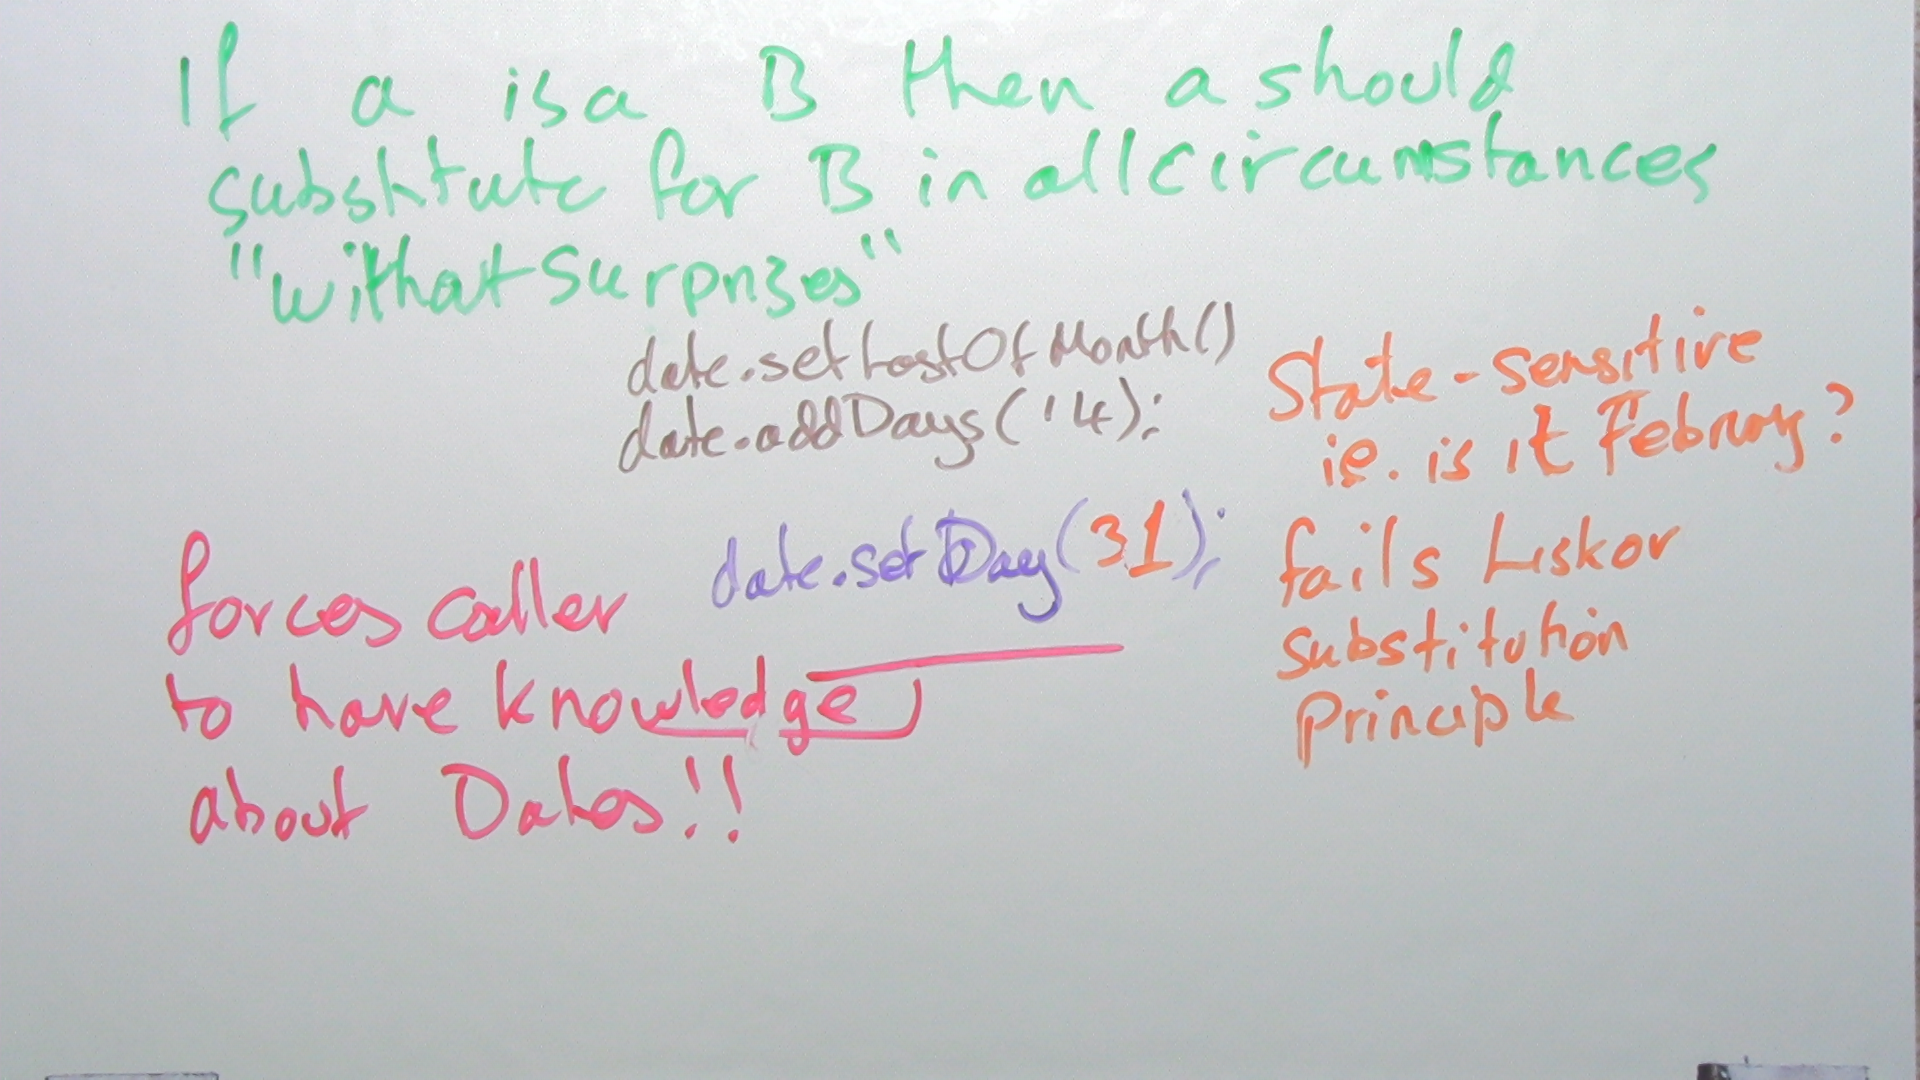 If a isa B then a should
substitute for B in all circumstances
"without Surprizes"
date.setLastOfMonth()
date.addDays(14);
State-sensitive
ie. is it February?
date.setDay(31);
fails Liskov
Substitution
Principle
forces caller
to have knowledge
about Dates!!